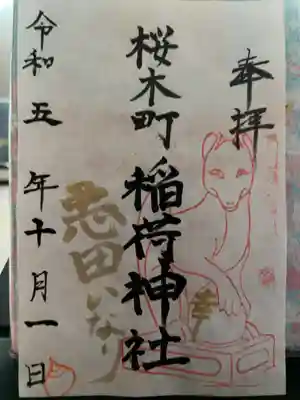 奉拝
桜木町 稲荷神社
悪田いなり
令和五年十月一日